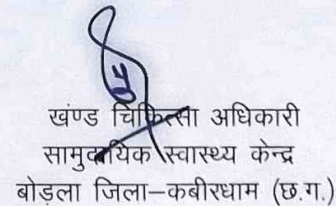 खण्ड चिकित्सा अधिकारी
सामुदायिक स्वास्थ्य केन्द्र
बोड़ला जिला–कबीरधाम (छ.ग.)